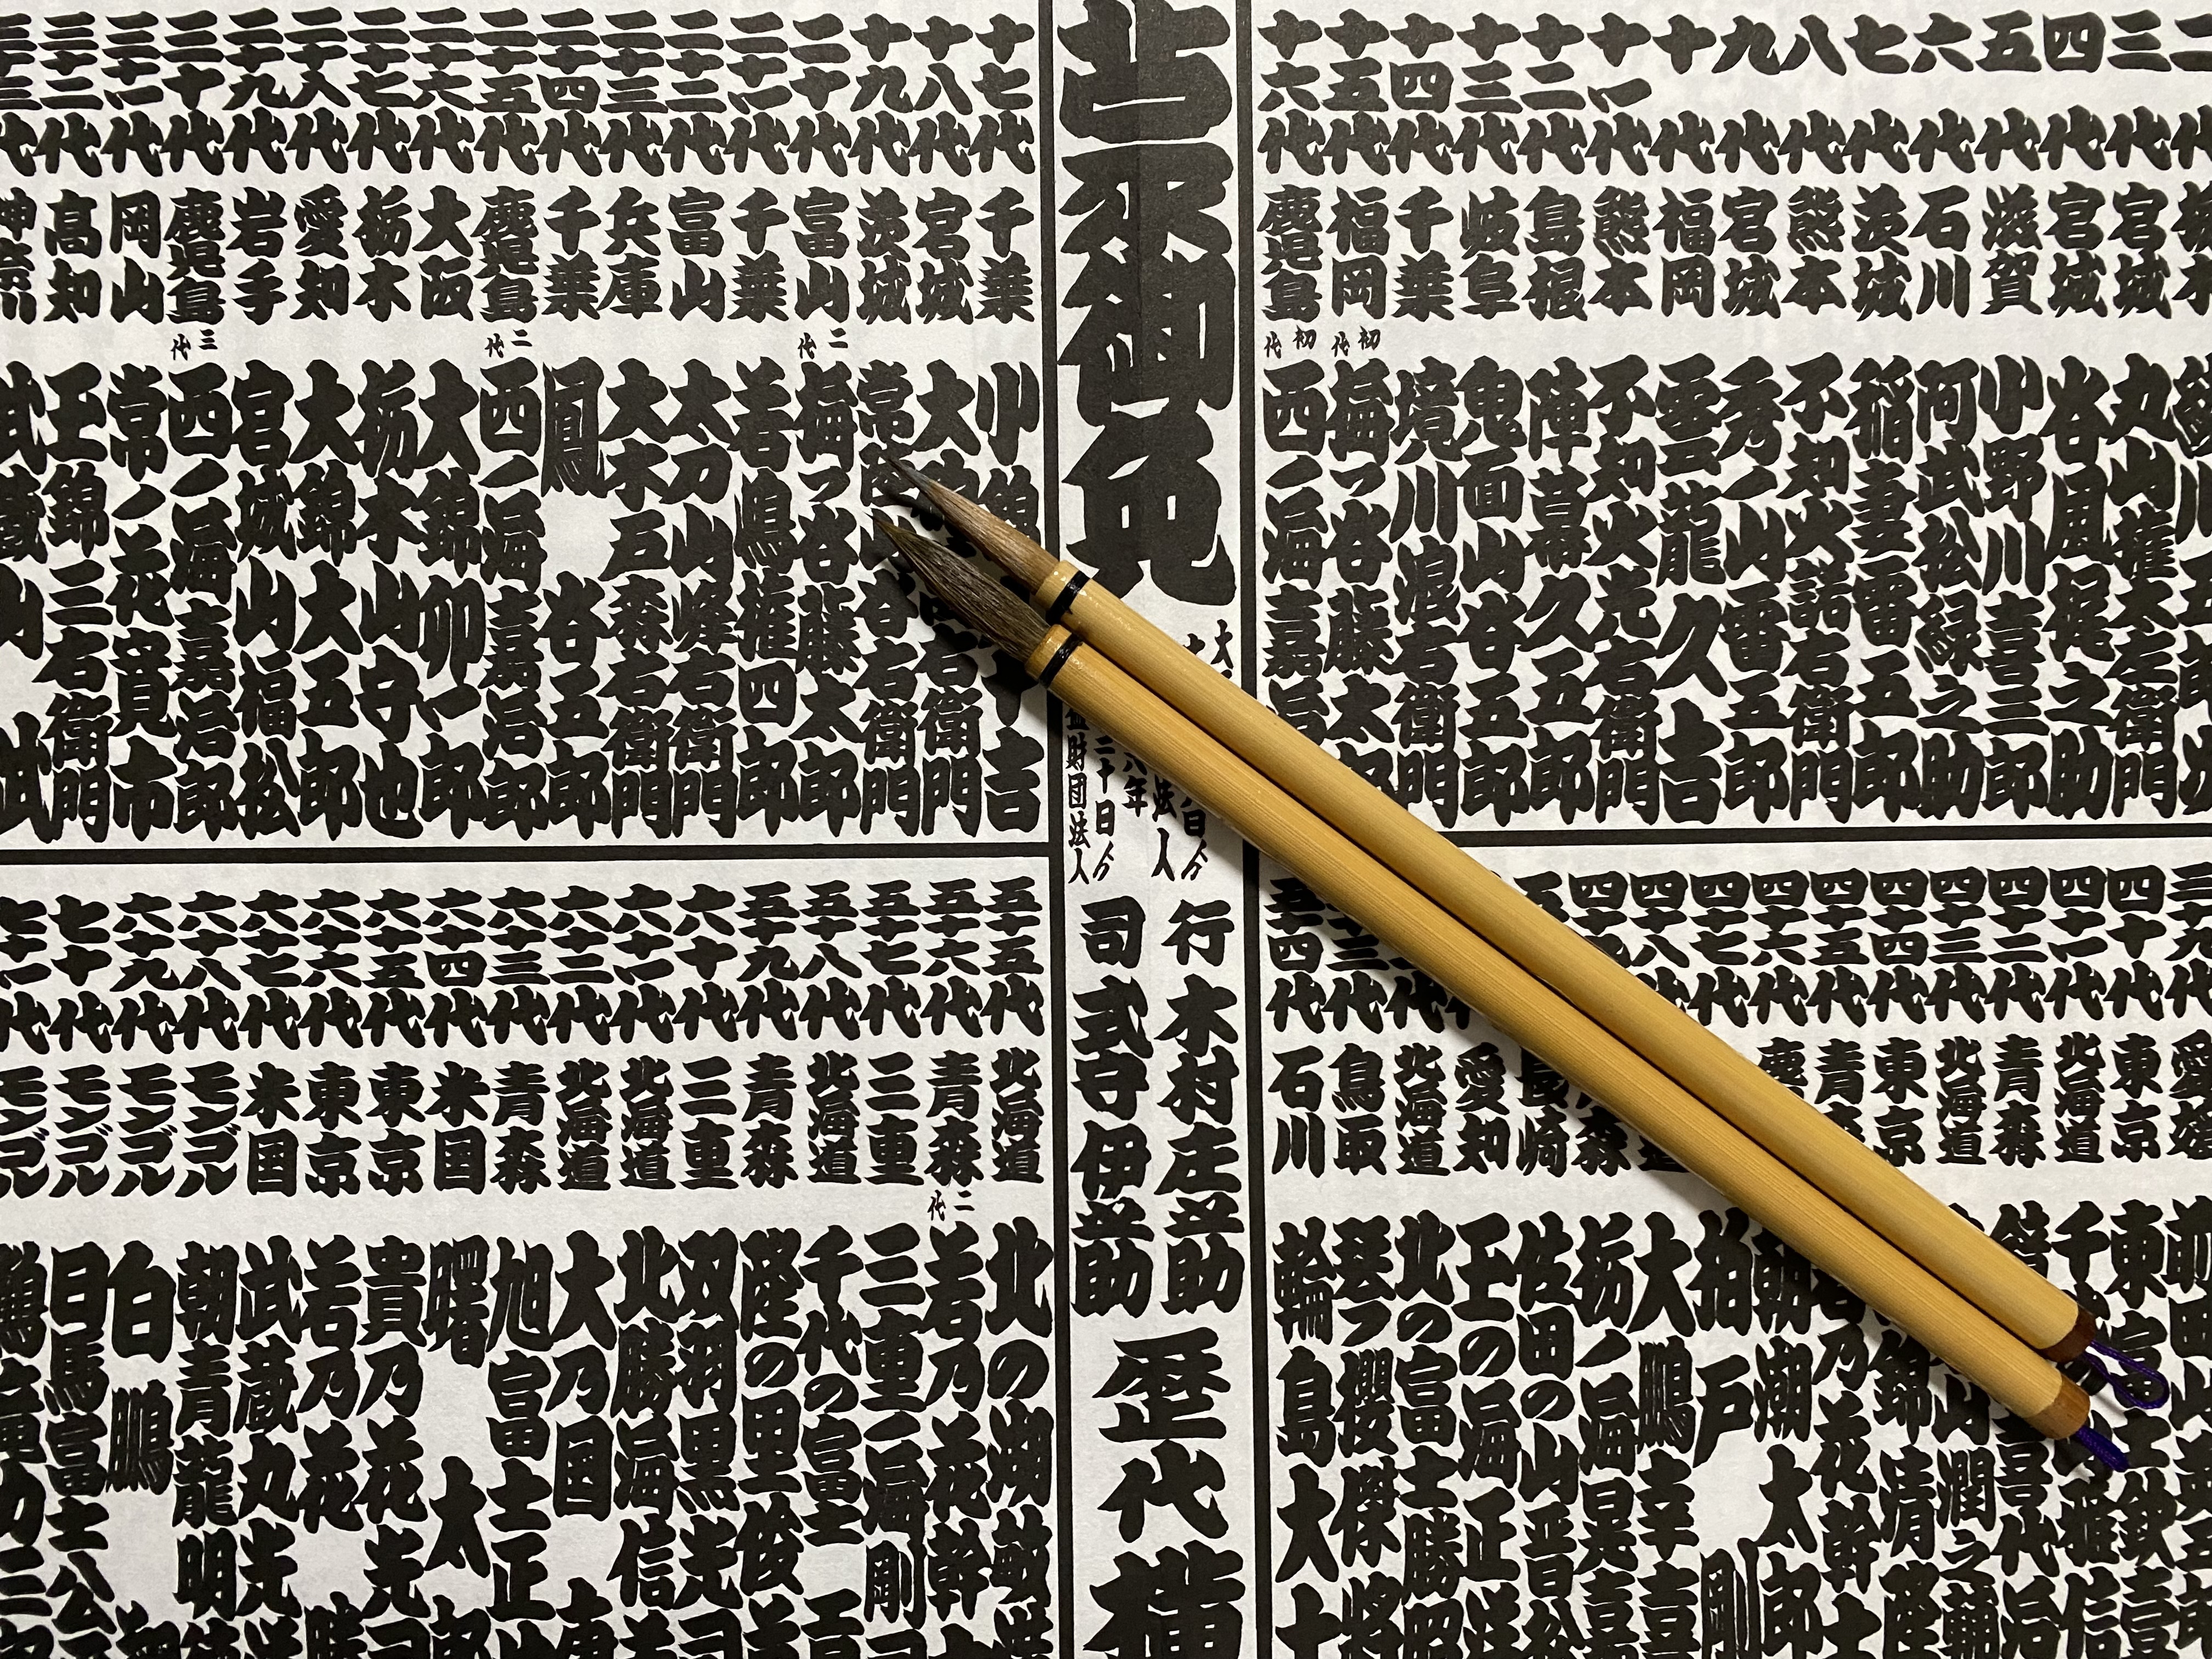 三代 宮城 丸山権太左衛門
四代 宮城 谷風梶之助
五代 滋賀 小野川喜三郎
六代 石川 阿武松緑之助
七代 茨城 稲妻雷五郎
八代 熊本 不知火諾右衛門
九代 宮城 秀ノ山雷五郎
十代 福岡 雲龍久吉
十一代 熊本 不知火光右衛門
十二代 島根 陣幕久五郎
十三代 岐阜 鬼面山谷五郎
十四代 千葉 境川浪右衛門
十五代 福岡 初代 梅ヶ谷藤太郎
十六代 鹿児島 初代 西ノ海嘉治郎
御免
財団法人
行司 木村庄之助
式守伊之助
歴代横
十七代 千葉 小錦 吉
十八代 宮城 大 右衛門
十九代 茨城 常陸 谷右衛門
二十代 富山 二代 梅ヶ谷藤太郎
二十一代 千葉 若嶋権四郎
二十二代 富山 太刀山峰右衛門
二十三代 兵庫 大木戸森右衛門
二十四代 千葉 鳳谷五郎
二十五代 鹿児島 二代 西ノ海嘉治郎
二十六代 大阪 大錦卯一郎
二十七代 栃木 栃木山守也
二十八代 愛知 大錦大五郎
二十九代 岩手 宮城山福松
三十代 鹿児島 三代 西ノ海嘉治郎
三十一代 岡山 常ノ花寛市
三十二代 高知 玉錦三右衛門
三十三代 神奈川 武蔵山武
三十九代 愛媛 前田山英五郎
四十代 東京 東富士欽壹郎
四十一代 北海道 千 雅信
四十二代 青森 鏡 喜代治
四十三代 北海道 山潤之輔
四十四代 東京 錦清隆
四十五代 青森 乃花幹士
四十六代 朝潮太郎
四十七代 柏戸剛
四十八代 大鵬幸喜
栃ノ海晃嘉
佐田の山晋松
愛知 玉の海正洋
北海道 北の富士勝昭
鳥取 琴櫻傑將
五十四代 石川 輪島大士
五十五代 北海道 北の湖敏満
五十六代 青森 二代 若乃花幹士
五十七代 三重 三重ノ海剛司
五十八代 北海道 千代の富士貢
五十九代 青森 隆の里俊英
六十代 三重 双羽黒光司
六十一代 北海道 北勝海信芳
六十二代 北海道 大乃国康
六十三代 青森 旭富士正也
六十四代 米国 曙太郎
六十五代 東京 貴乃花光司
六十六代 東京 若乃花勝
六十七代 米国 武蔵丸光洋
六十八代 モンゴル 朝青龍明徳
六十九代 モンゴル 白鵬翔
七十代 モンゴル 日馬富士公平
七十一代 モンゴル 鶴竜力三郎